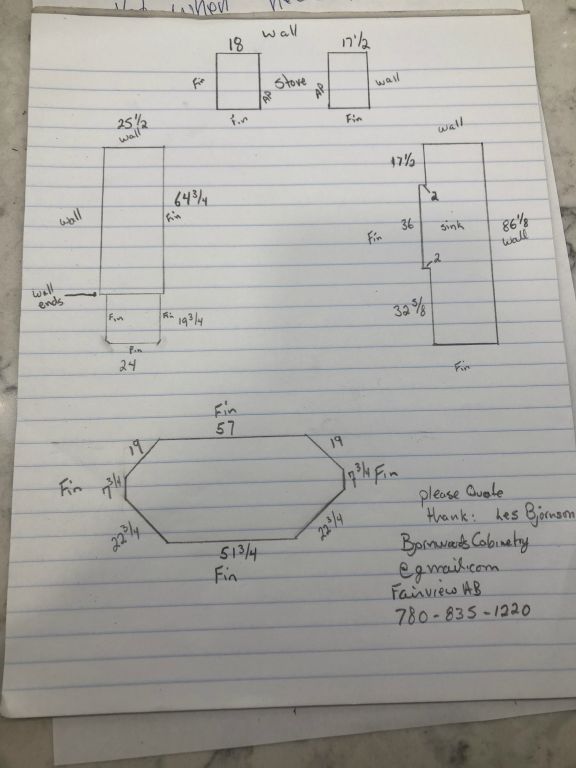 wall
18
17 1/2
Fin
AP
Stove
AP
wall
Fin
Fin
25 1/2
wall
wall
64 3/4
Fin
wall
ends
Fin
Fin 19 3/4
Fin
24
wall
17 1/2
2
Fin
36
sink
86 1/8
wall
2
32 5/8
Fin
Fin
57
19
19
Fin
7 3/4
7 3/4 Fin
22 3/4
22 3/4
51 3/4
Fin
please Quote
thank: Les Bjornson
Bjornwoods Cabinetry
@gmail.com
Fairview AB
780-835-1220